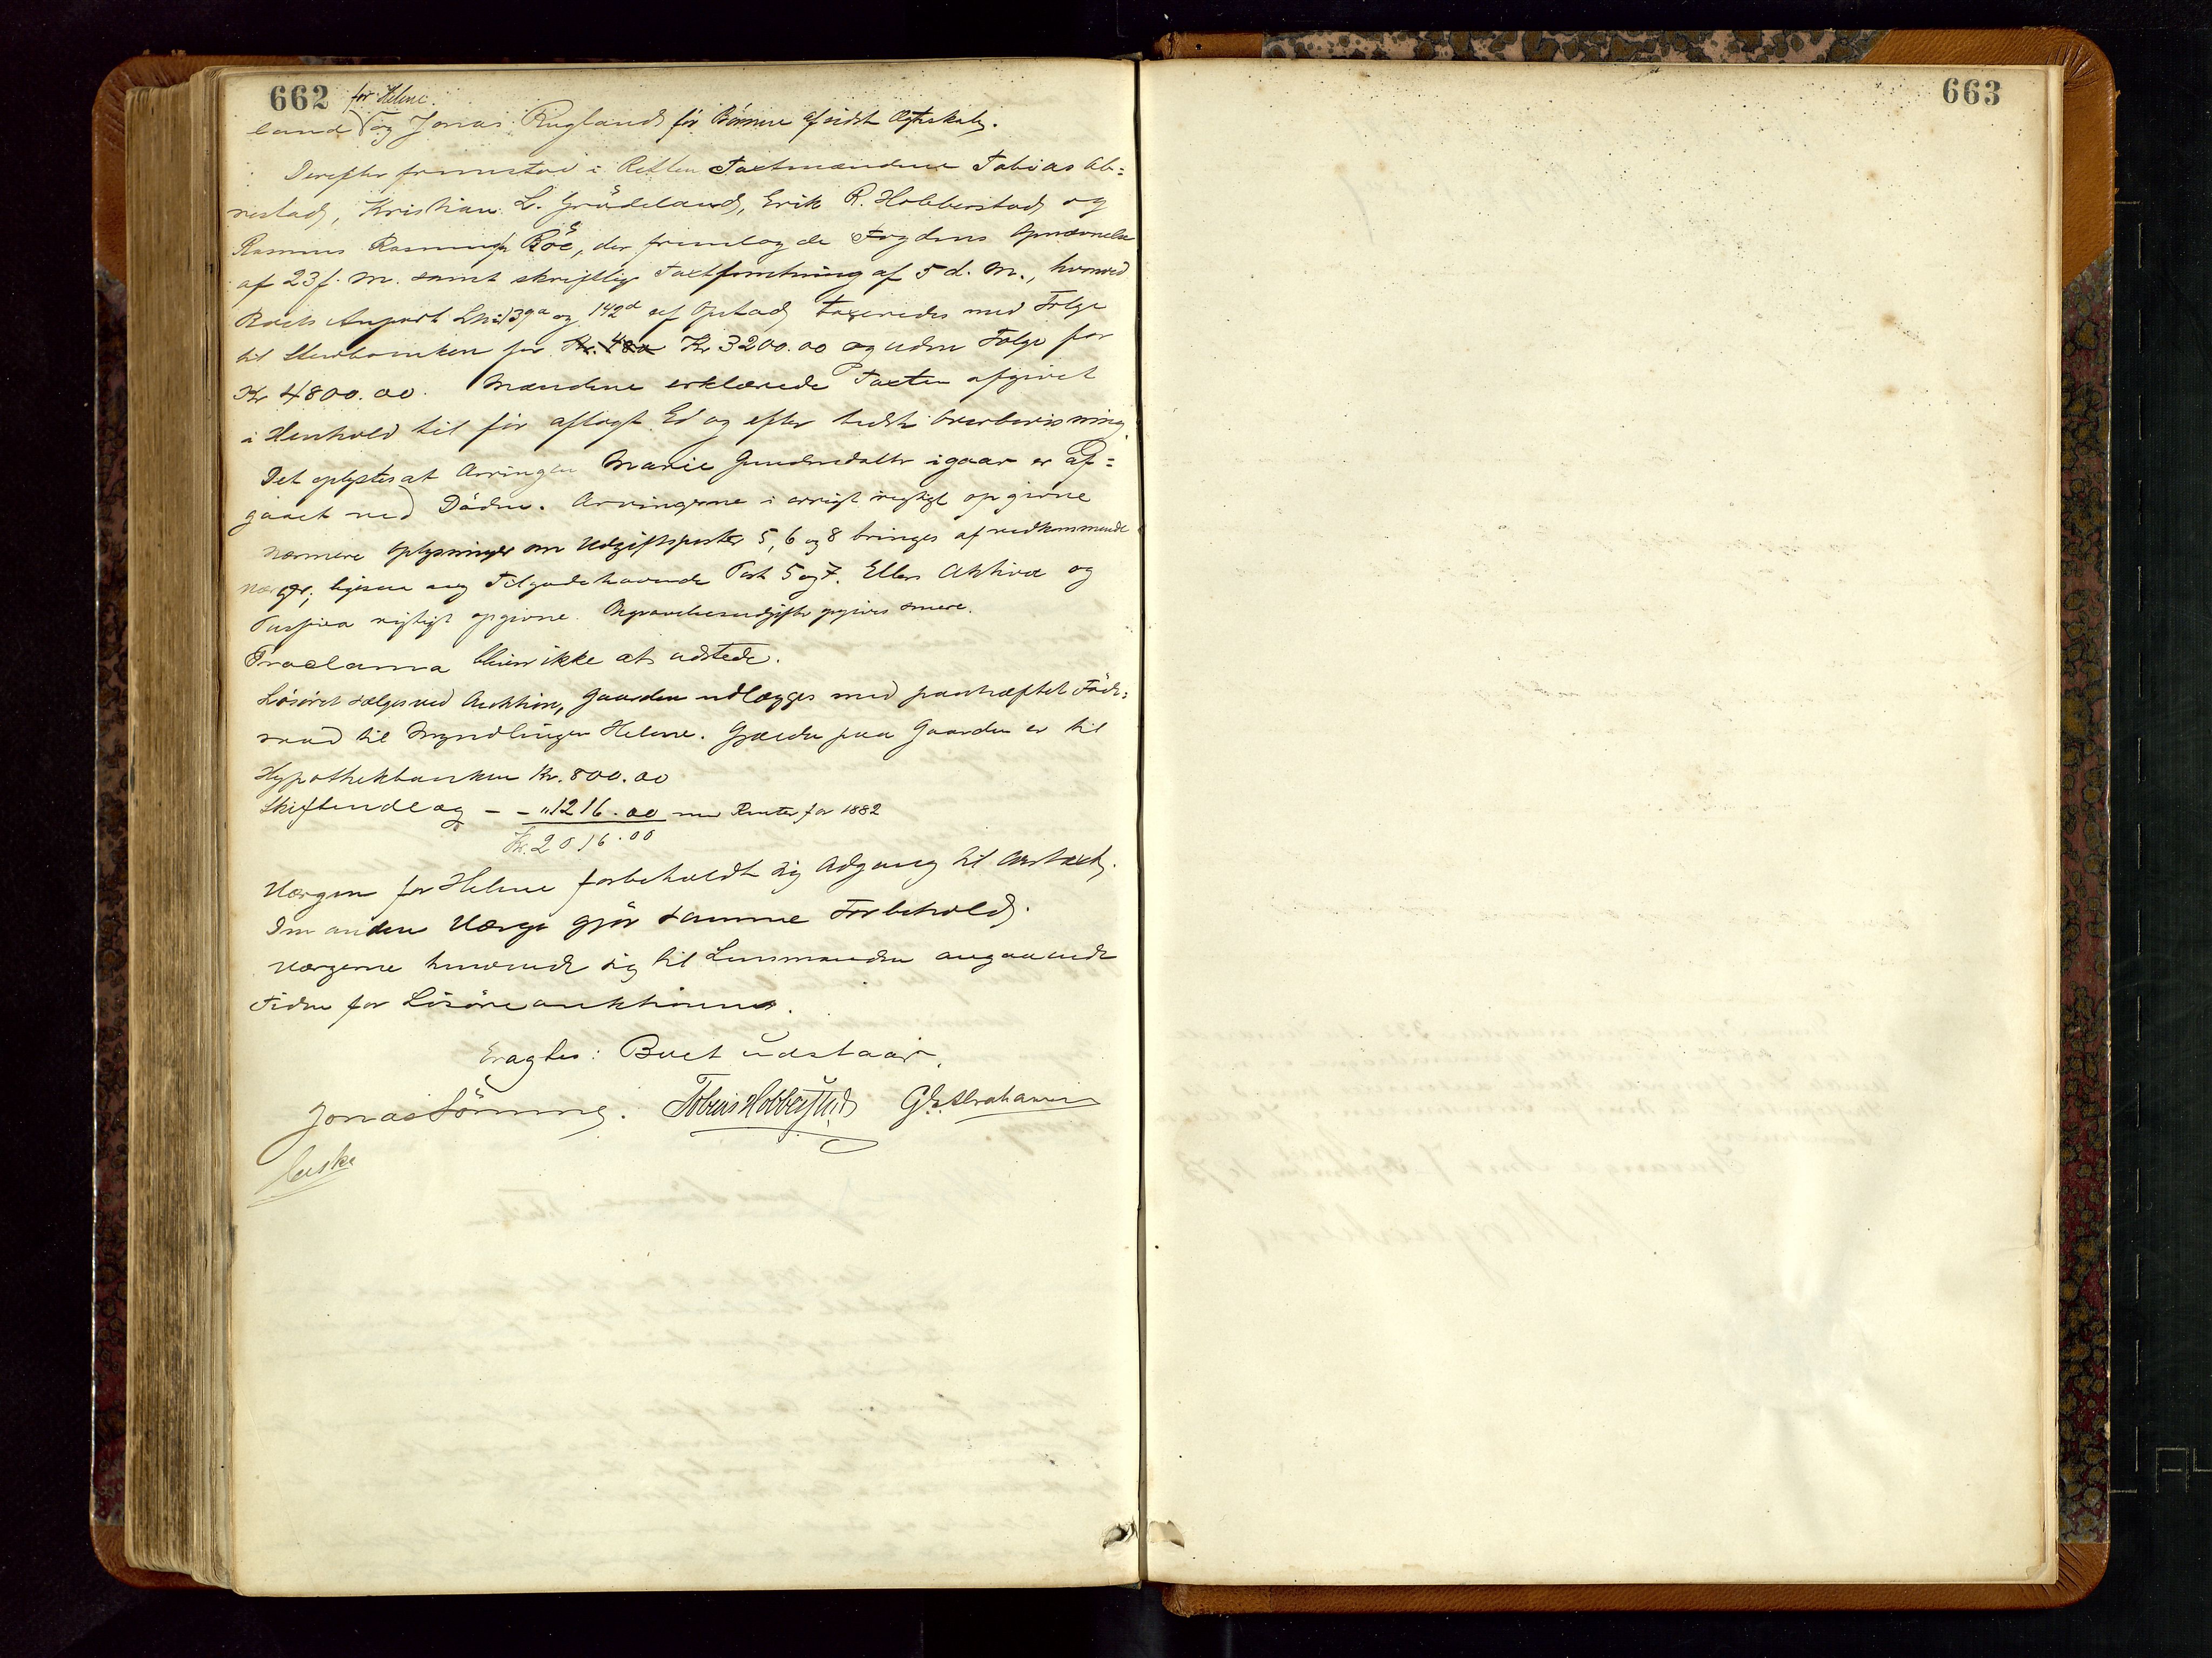 662 for Helene
land og Jonas Rugland for Børnene af sidste Ægteskab.
Derefter fremstod i Retten Taxtmændene Tobias Ab=
restad, Kristian L. Grødeland, Erik R. Hobberstad og
Rasmus Rasmus Röe, der fremlagde Fogdens Opnævnelse
af 23 f. M. samt skriftlig Taxtforretning af 5 d. M., hvorved
Boets Anpart L.No 139a og 142d af Opstad taxeredes med Følge
til Livsbanken for Kr. 480 Kr 3200.00 og uden Følge for
Kr 4800.00. Mændene erklærede Taxten afgivet
i Henhold til før aflagt Ed og efter bedste Overbevisning
Det oplystes at Arvingen Marie Gundersdatter igaar er af=
gaaet ved Døden. Arvingerne i øvrigt rigtigt opgivne
Nærmere Oplysninger om Udgiftsposter 5, 6 og 8 bringes af vedkommende
Værge, ligesaa ang Tilgodehavende Post 5 og 7. Ellers Aktiva og
Passiva rigtigt opgivne. Begravelsesudgifter opgives senere.
Proclama bliver ikke at udstede.
Løsøret sælges ved Auktion, Gaarden udlægges med paahæftet Føde=
raad til Myndlingen Helene. Gjælden paa Gaarden er til
Hypothekbanken Kr. 800.00
Skifteudlæg – – " 1216.00 med Renter for 1882
Kr. 2016.00
Værgen for Helene forbeholdt sig Adgang til Overtaxt.
Den anden Værge gjør samme Forbehold.
Værgerne henvende sig til Lensmanden angaaende
Tiden for Løsøreauktionen.
Eragtes: Boet udstaar.
Jonas Sömme. Tobias Hobberstad G. B. Abrahamsen
663